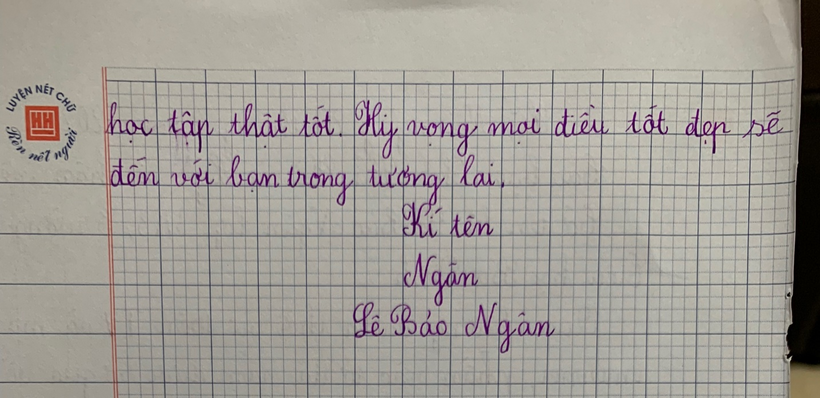 LUYỆN NÉT CHỮ
HH
Rèn nết người
học tập thật tốt. Hy vọng mọi điều tốt đẹp sẽ
đến với bạn trong tương lai.
Kí tên
Ngân
Lê Bảo Ngân